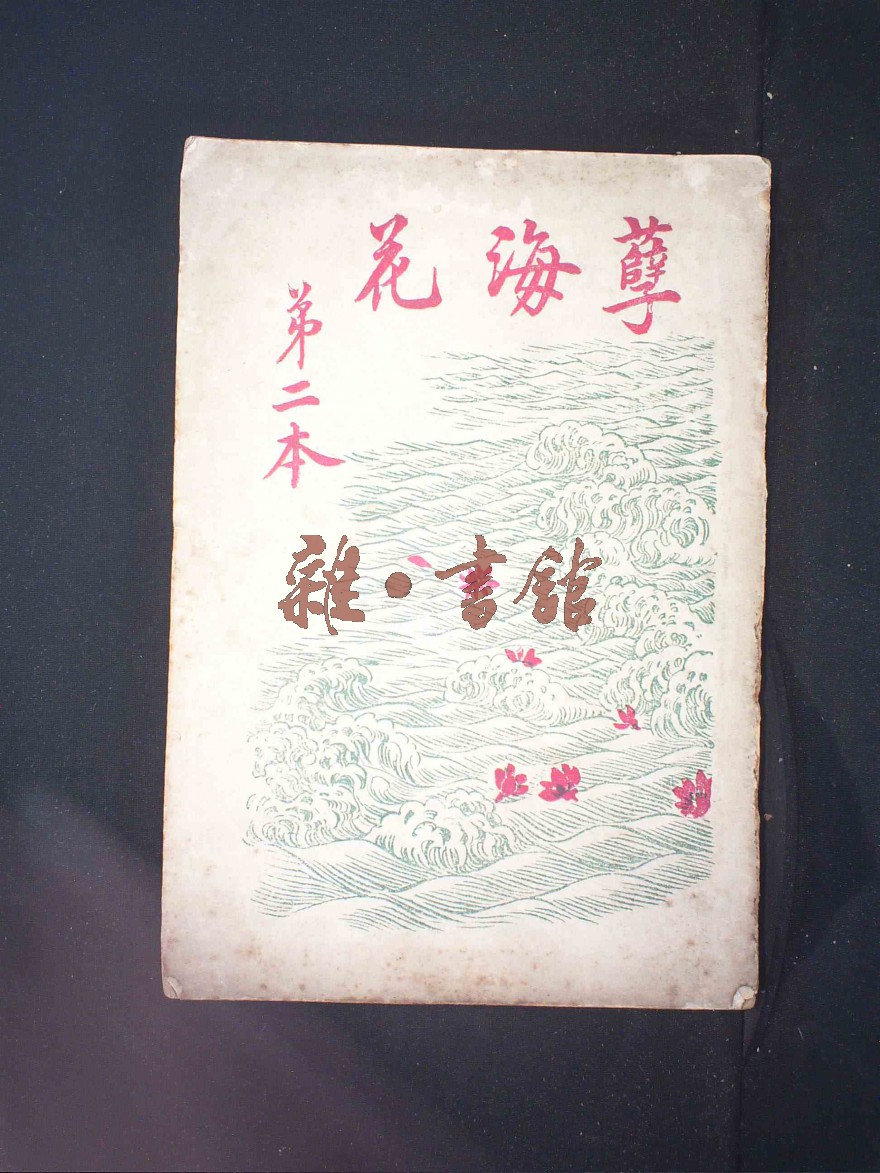 孽海花
第二本
雜·書館